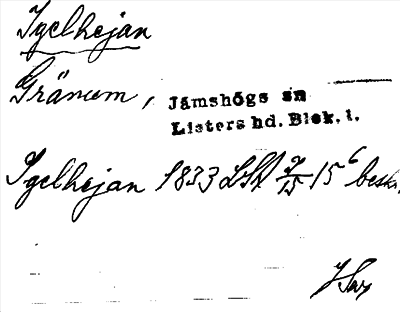 Igelhejan
Gränum, Jämshögs sn
Listers hd. Blek. l.
Igelhejan 1833 LSA 2/15 15⁶ beskr.